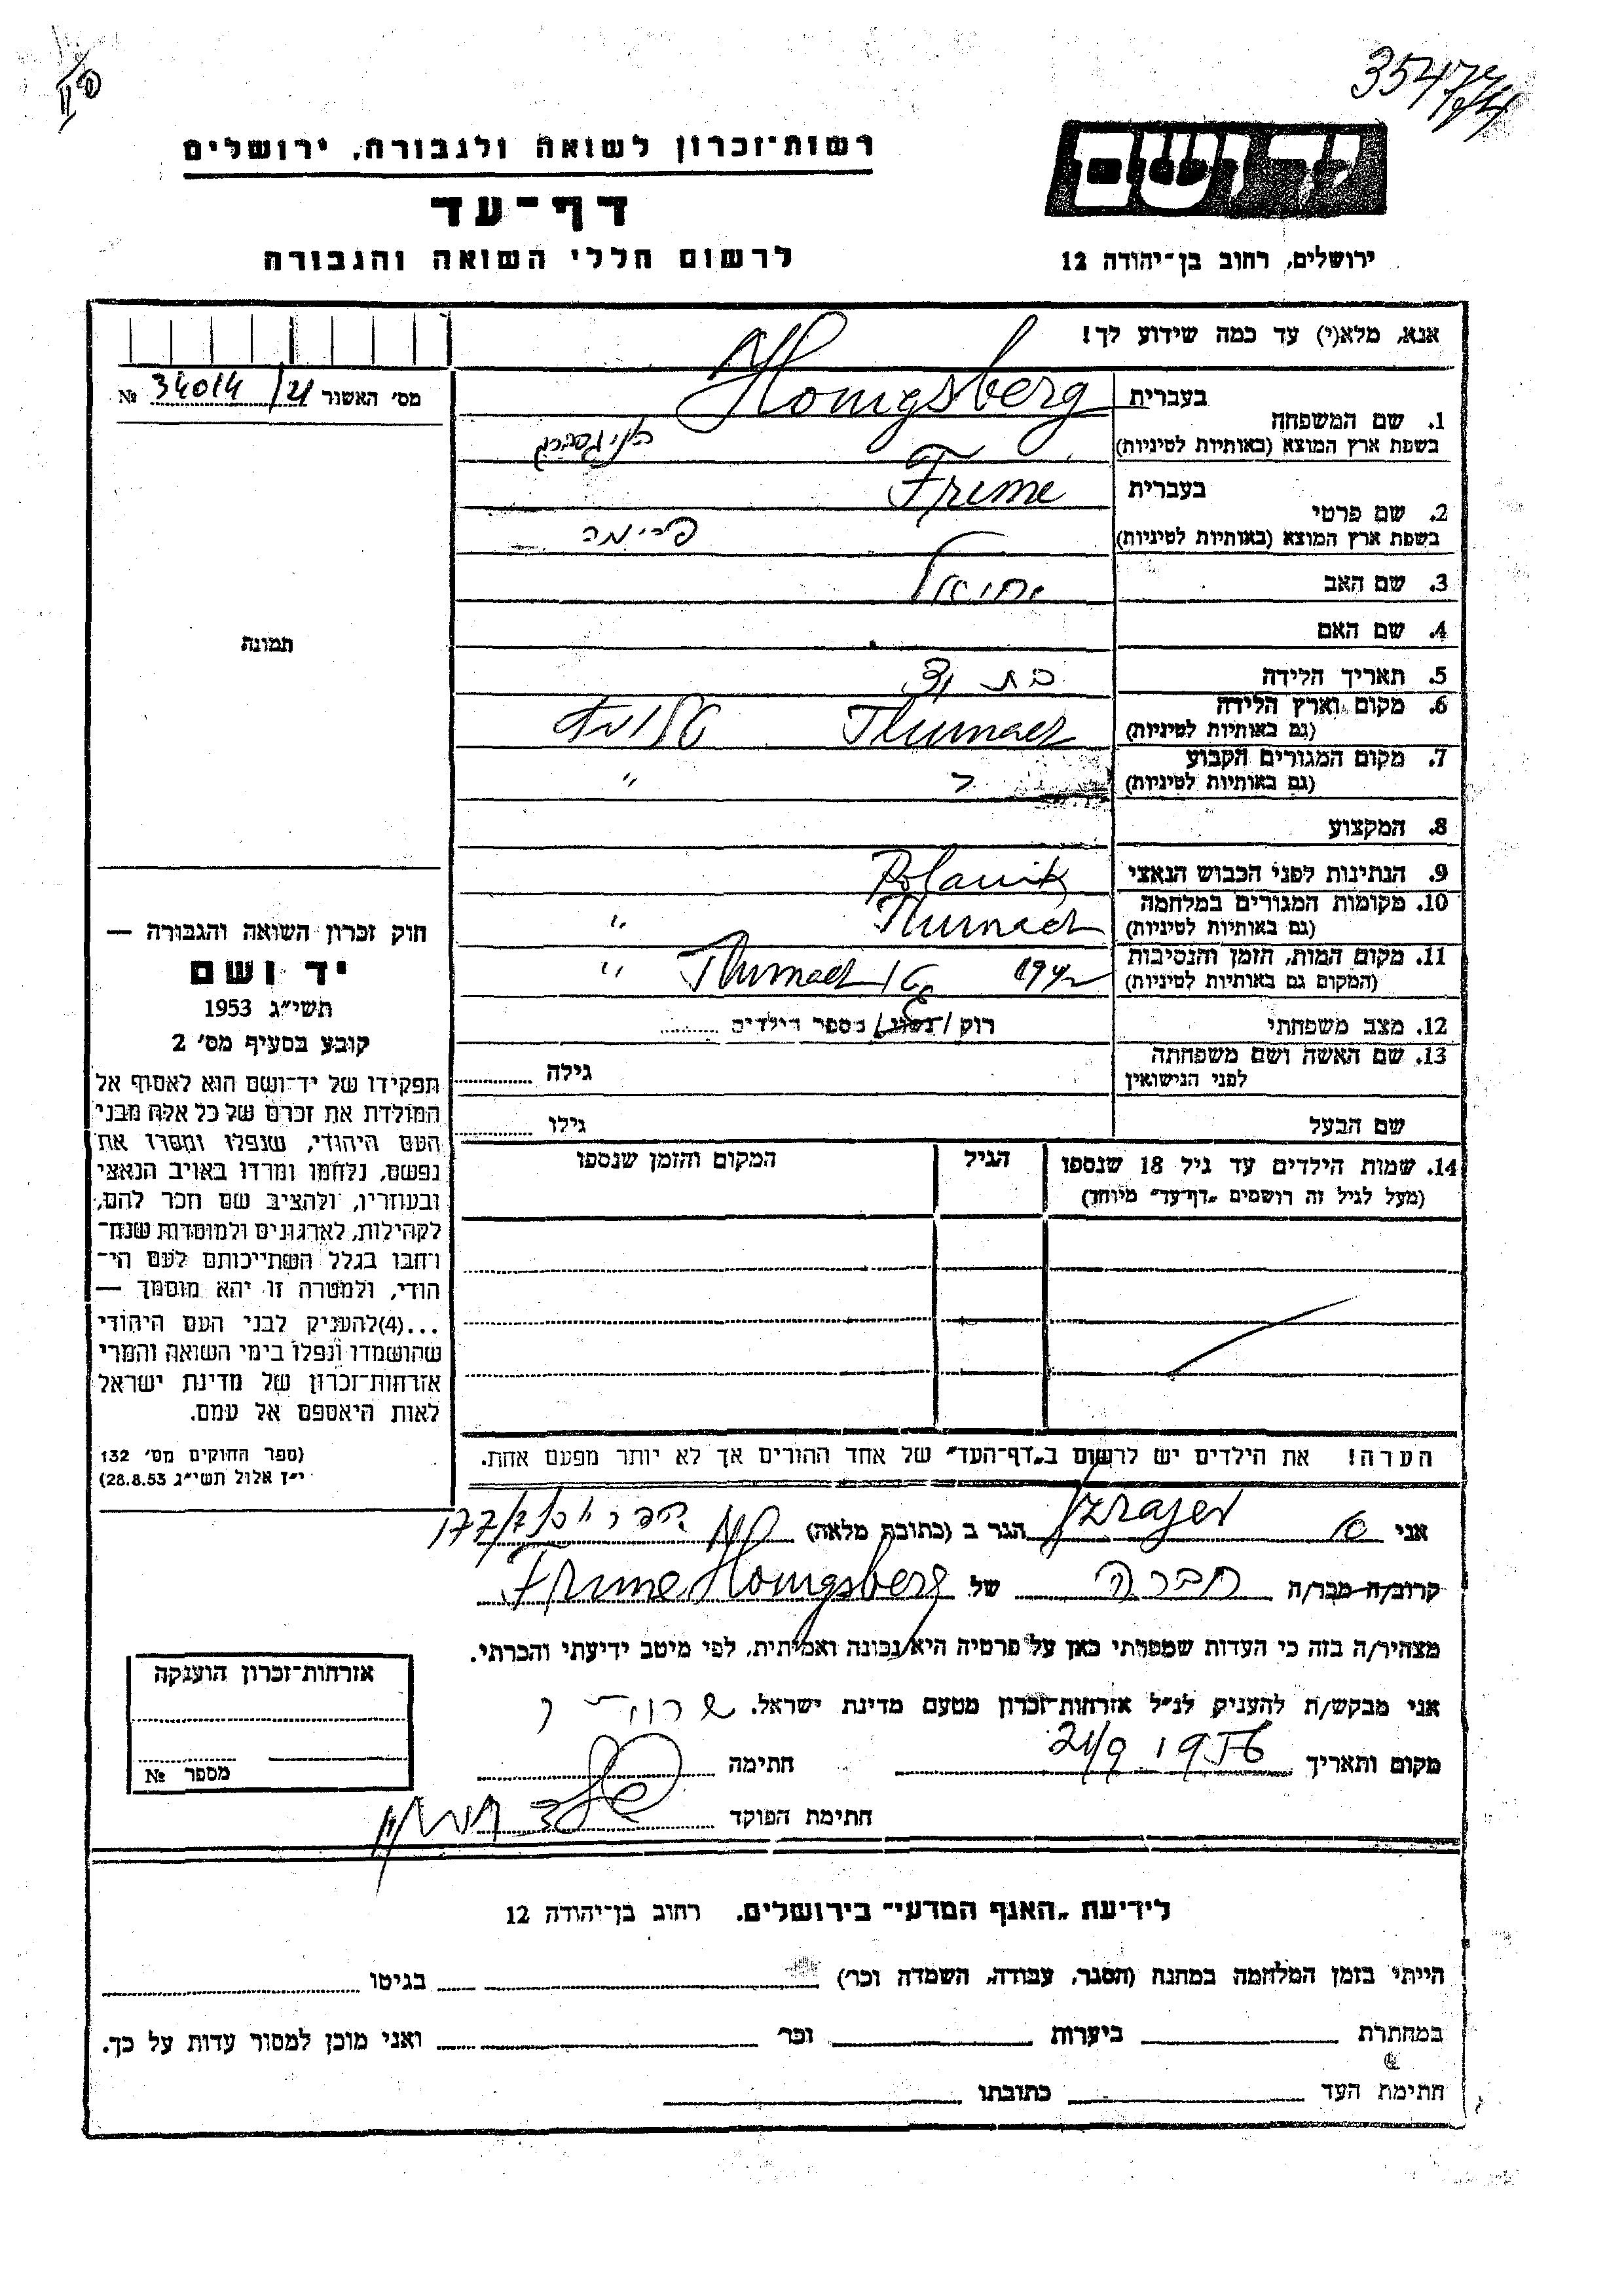 35477
רשות-זכרון לשואה ולגבורה, ירושלים
יד ושם
דף-עד
לרשום חללי השואה והגבורה
ירושלים, רחוב בן-יהודה 12
אנא, מלא(י) עד כמה שידוע לך!
מס׳ האשור 34014/21 №
בעברית Honigsberg
1. שם המשפחה
בשפת ארץ המוצא (באותיות לטיניות) הניגסברג
בעברית Frime
2. שם פרטי
בשפת ארץ המוצא (באותיות לטיניות) פרימה
3. שם האב יחיאל
4. שם האם
תמונה
5. תאריך הלידה בת
6. מקום וארץ הלידה
(גם באותיות לטיניות) Tlumacz
7. מקום המגורים הקבוע
(גם באותיות לטיניות) "
8. המקצוע
9. הנתינות לפני הכבוש הנאצי
10. מקומות המגורים במלחמה
(גם באותיות לטיניות) Tlumacz "
11. מקום המות, הזמן והנסיבות
(המקום גם באותיות לטיניות) 1942 Tlumacz "
12. מצב משפחתי רוק / נשוי / מספר הילדים
13. שם האשה ושם משפחתה
לפני הנישואין גילה
שם הבעל גילו
14. שמות הילדים עד גיל 18 שנספו הגיל המקום והזמן שנספו
(מעל לגיל זה רושמים „דף-עד" מיוחד)
הערה! את הילדים יש לרשום ב„דף-העד" של אחד ההורים אך לא יותר מפעם אחת.
חוק זכרון השואה והגבורה —
יד ושם
תשי״ג 1953
קובע בסעיף מס׳ 2
תפקידו של יד-ושם הוא לאסוף אל
המולדת את זכרם של כל אלה מבני
העם היהודי, שנפלו ומסרו את
נפשם, נלחמו ומרדו באויב הנאצי
ובעוזריו, ולהציב שם וזכר להם,
לקהילות, לארגונים ולמוסדות שנח-
רחבו בגלל השתייכותם לעם הי-
הודי, ולמטרה זו יהא מוסמך —
...(4)להעניק לבני העם היהודי
שהושמדו ונפלו בימי השואה והמרי
אזרחות-זכרון של מדינת ישראל
לאות היאספם אל עמם.
(ספר החוקים מס׳ 132
י״ז אלול תשי״ג 28.8.53)
אני Izrajev הגר ב (כתובת מלאה)
קרוב/ה מכר/ה חברה של Frime Honigsberg
מצהיר/ה בזה כי העדות שמסרתי כאן על פרטיה היא נכונה ואמיתית, לפי מיטב ידיעתי והכרתי.
אני מבקש/ת להעניק לנ״ל אזרחות-זכרון מטעם מדינת ישראל.
מקום ותאריך 21/9 1956 חתימה
חתימת הפוקד
אזרחות-זכרון הוענקה
מספר №
לידיעת „האגף המדעי" בירושלים, רחוב בן-יהודה 12
הייתי בזמן המלחמה במחנה (הסגר, עבודה, השמדה וכר׳) בגיטו
במחתרת ביערות וכר׳ ואני מוכן למסור עדות על כך.
חתימת העד כתובתו